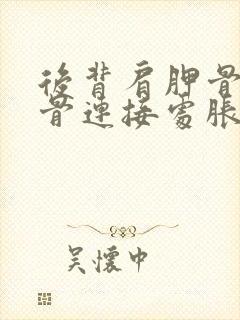 後背肩胛骨
骨連接處脹
吳懷中